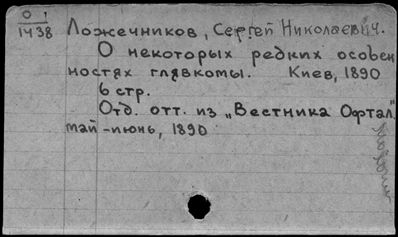 О 1
1438
Ложечников, Сергей Николаевич.
О некоторых редких особен
ностях глаукомы. Киев, 1890
6 стр.
Отд. отт. из „Вестника Офтал."
май-июнь, 1890